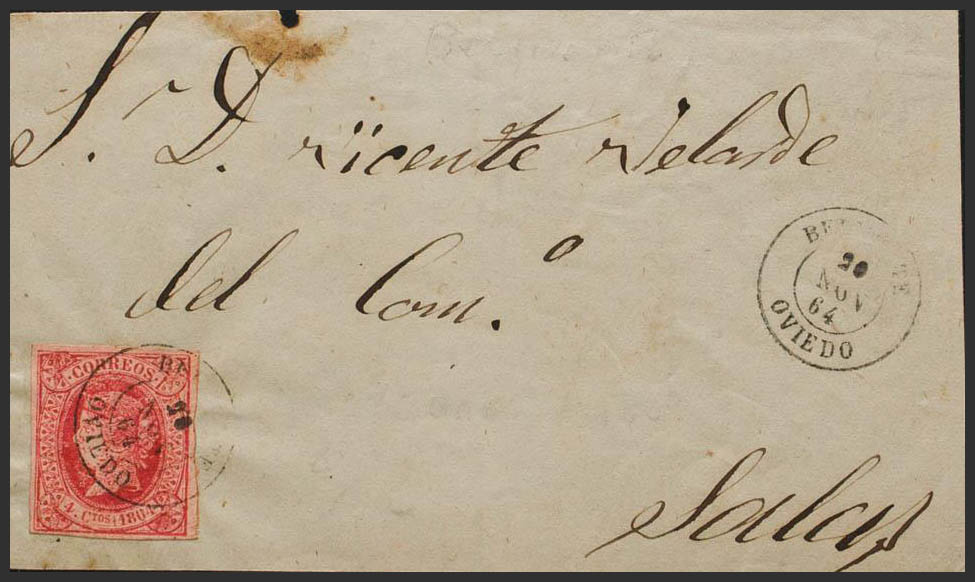 S.r D. Vicente Velarde
del Com.o
Salas
OVIEDO
20
NOV
64
CORREOS
4. Ctos 1864
20
NOV
64
OVIEDO